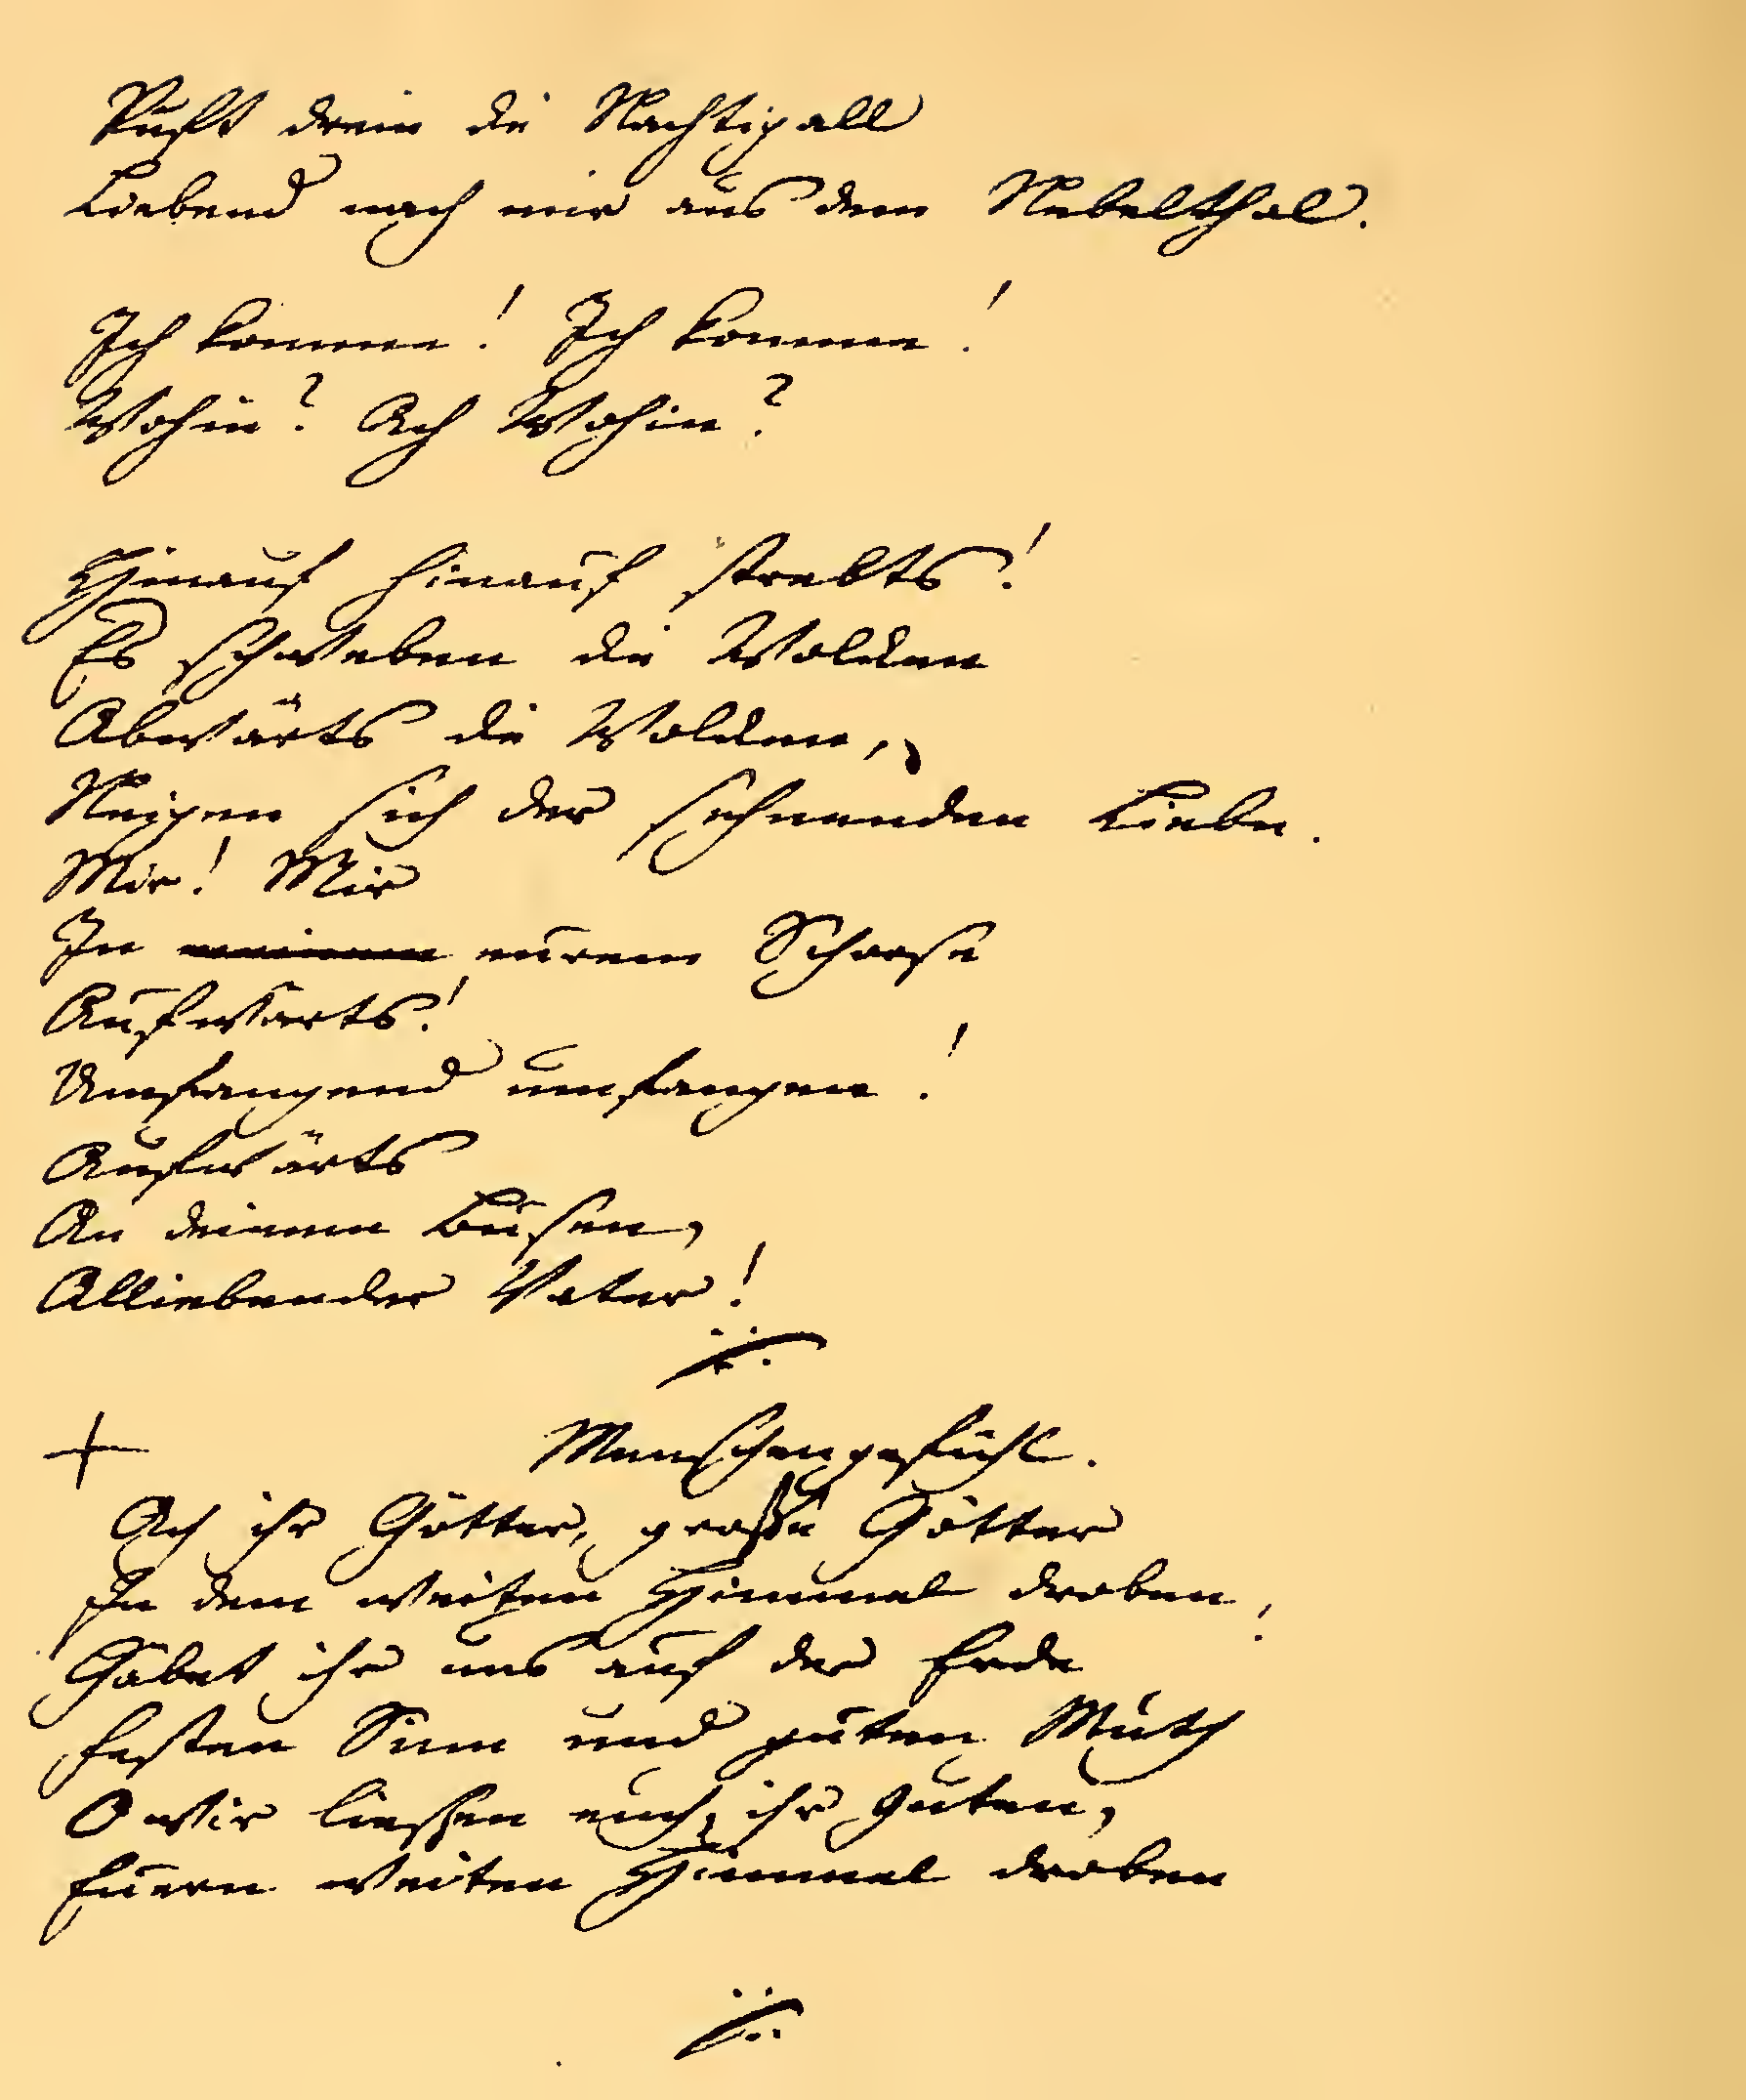 Ruft drein die Nachtigall
Liebend nach mir aus dem Nebelthal.
Ich komme! Ich komme!
Wohin? Ach Wohin?
Hinauf hinauf strebts!
Es schweben die Wolcken
Abwärts die Wolcken,
Neigen sich der sehnenden Liebe.
Mir! Mir
In meinem eurem Schoose
Aufwärts!
Umfangend umfangen!
Aufwärts
An deinem Busen,
Alliebender Vater!
Menschengefühl.
Ach ihr Götter, grosse Götter
In dem weiten Himmel droben!
Gäbet ihr uns auf der Erde
Festen Sinn und guten Muth
O wir liessen euch, ihr Guten,
Euern weiten Himmel droben